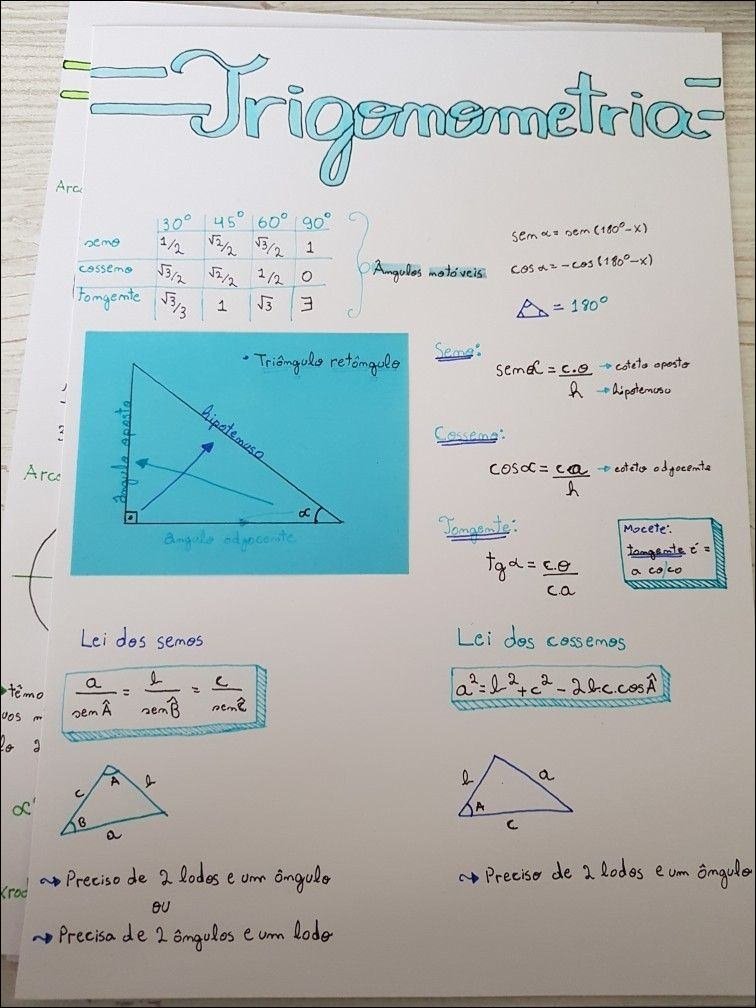 Trigonometria
30° 45° 60° 90°
seno 1/2 √2/2 √3/2 1
cosseno √3/2 √2/2 1/2 0
Tangente √3/3 1 √3 ∃
Ângulos notáveis
sen α = sen (180° - x)
cos α = - cos (180° - x)
= 180°
• Triângulo retângulo
ângulo oposto
hipotenusa
α
ângulo adjacente
Seno:
sen α = c.o → cateto oposto
h → hipotenusa
Cosseno:
cos α = c.a → cateto adjacente
h
Tangente:
tg α = c.o
c.a
Macete:
tangente é =
a co/co
Lei dos senos
a = b = c
sen Â sen B̂ sen Ĉ
c A b
B a
↝ Preciso de 2 lados e um ângulo
ou
↝ Precisa de 2 ângulos e um lado
Lei dos cossenos
a² = b² + c² - 2.b.c.cos Â
b a
A
c
↝ Preciso de 2 lados e um ângulo
Arc
Arc
têmo
vos m
lo 2
α'